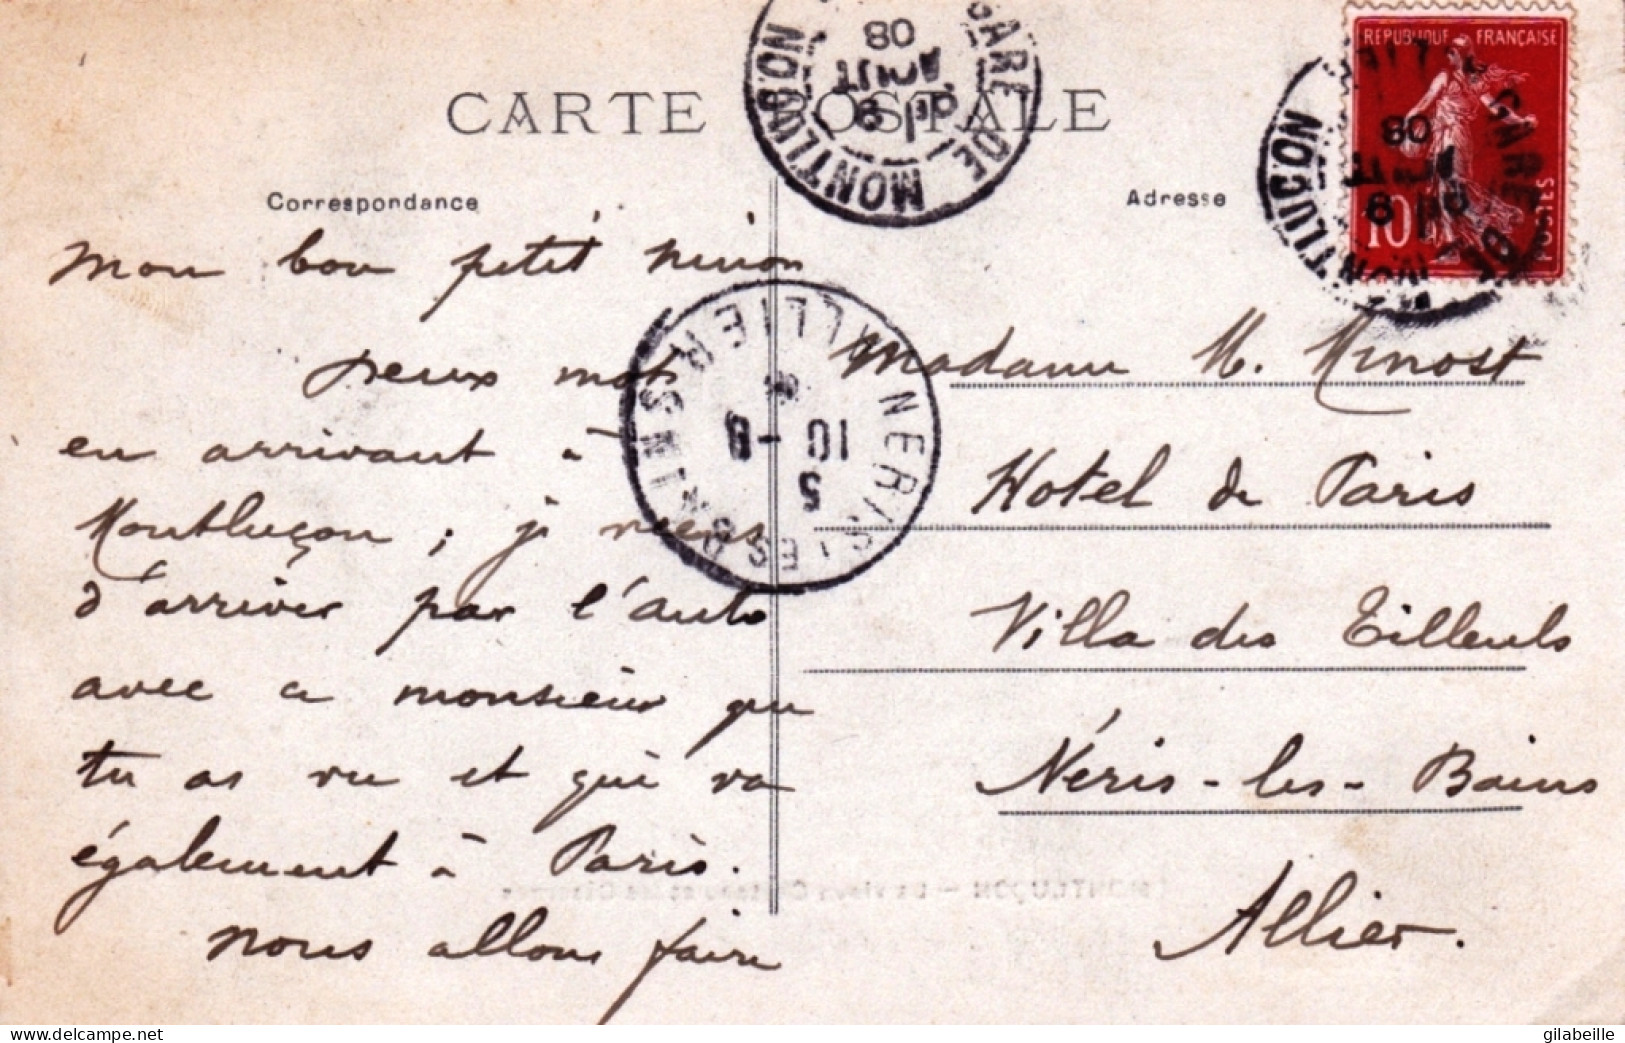 CARTE POSTALE
Correspondance
Adresse
mon bon petit ninon
deux mots
en arrivant à
Montluçon ; je viens
d'arriver par l'auto
avec ce monsieur que
tu as vu et qui va
également à Paris.
nous allons faire
Madame M. Minost
Hotel de Paris
Villa des Tilleuls
Néris-les-Bains
Allier.
RÉPUBLIQUE FRANÇAISE
10
POSTES
GARE DE MONTLUÇON
9
AOUT
08
GARE DE MONTLUÇON
9
08
NERIS-LES-BAINS
ALLIER
5
10 - 8
MONTLUÇON - Le vieux Château et les
delcampe.net
gilabeille